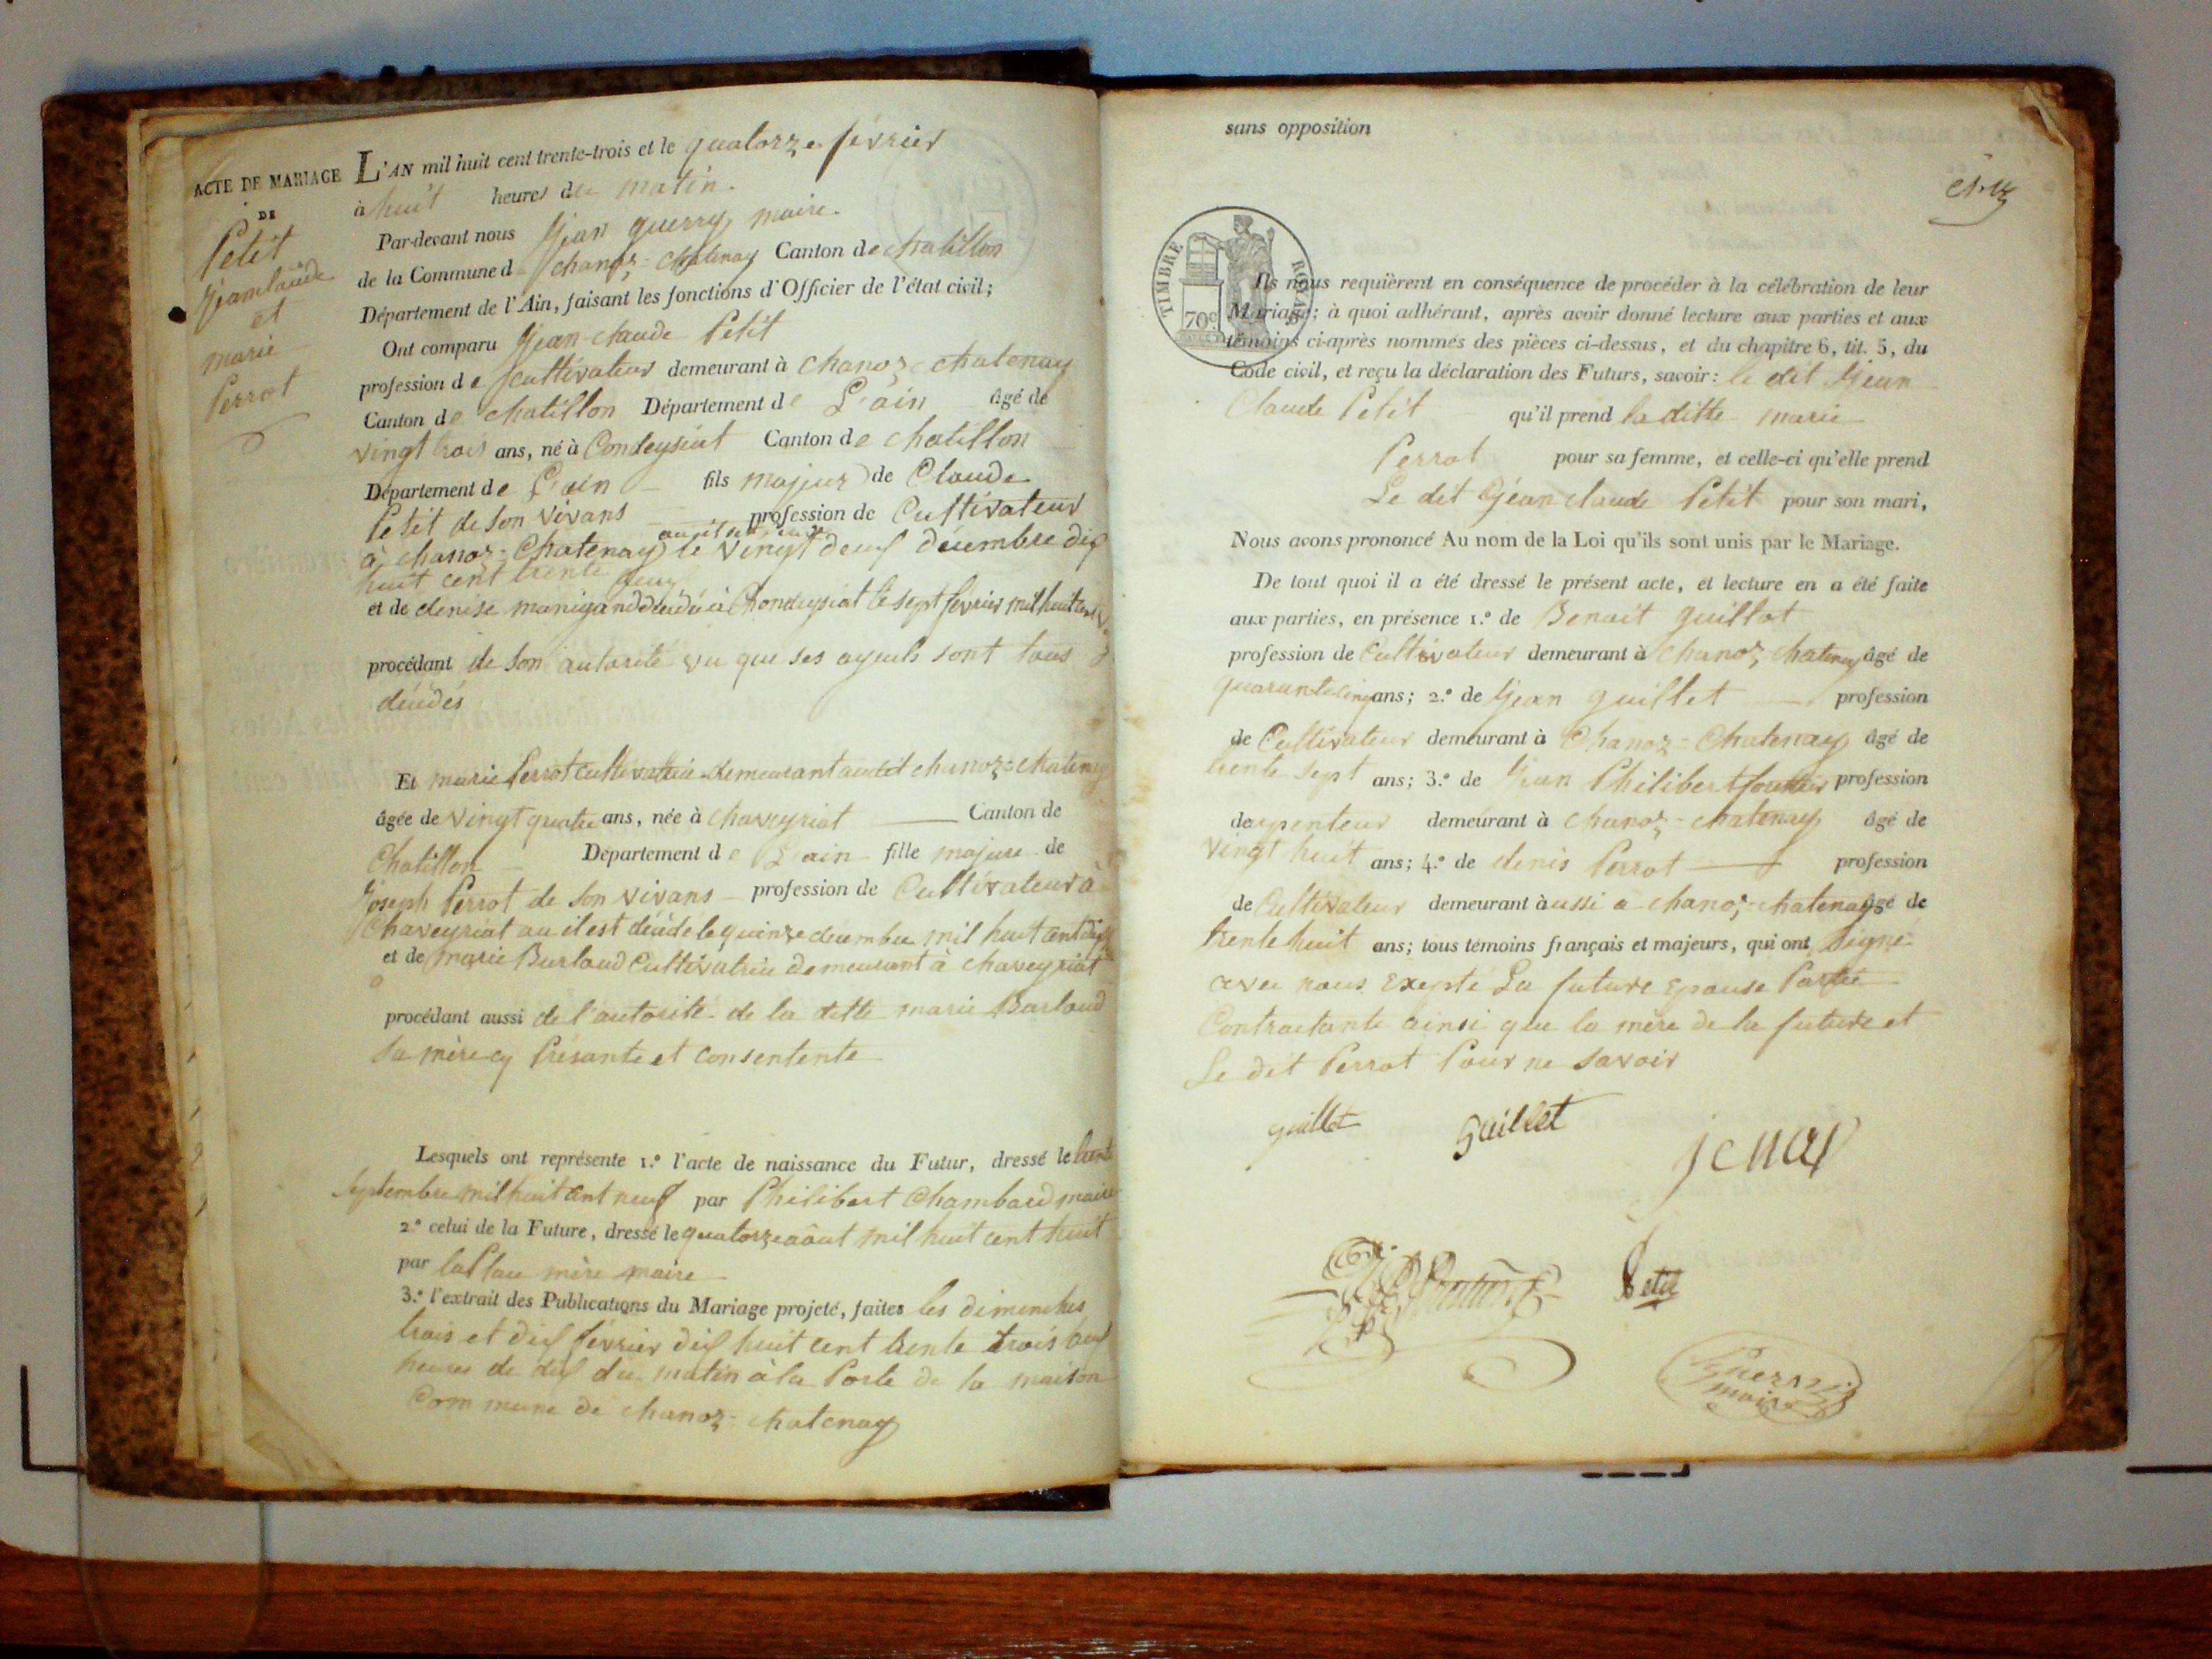 ACTE DE MARIAGE
DE
Petit
Jean claude
et
marie
Perrot
L'AN mil huit cent trente-trois et le quatorze février
à huit heures du matin.
Par-devant nous Jean guerry maire.
de la Commune de chanoz-chatenay Canton de chatillon
Département de l'Ain, faisant les fonctions d'Officier de l'état civil;
Ont comparu Jean claude Petit
profession de cultivateur demeurant à chanoz-chatenay
Canton de chatillon Département de L'ain âgé de
vingt trois ans, né à Condeysiat Canton de chatillon
Département de L'ain fils majeur de Claude
Petit de son vivans profession de Cultivateur
à chanoz-Chatenay le vingt deux décembre dix
huit cent trente deux
et de denise manigand décédée à Condeysiat le sept fevrier mil huit cent
procédant de son autorité vu que ses ayeuls sont tous
décédés
Et marie Perrot cultivatrice demeurant audit chanoz=chatenay
âgée de vingt quatre ans, née à chaveyriat Canton de
Chatillon Département de L'ain fille majeure de
Joseph Perrot de son vivans profession de Cultivateur à
Chaveyriat ou il est décédé le quinze decembre mil huit cent
et de marie Burtaud Cultivatrice demeurant à chaveyriat
procédant aussi de l'autorité de la ditte marie Burtaud
sa mère cy Présante et consentente
Lesquels ont représenté 1.º l'acte de naissance du Futur, dressé le trente
septembre mil huit cent neuf par Philibert Chambard maire
2.º celui de la Future, dressé le quatorze aôut mil huit cent huit
par maire
3.º l'extrait des Publications du Mariage projeté, faites les dimenches
trois et dix février dix huit cent trente trois
heures de dix du matin à la Porte de la maison
Commune de chanoz=chatenay
sans opposition
TIMBRE ROYAL
70c
Ils nous requièrent en conséquence de procéder à la célébration de leur
Mariage; à quoi adhérant, après avoir donné lecture aux parties et aux
témoins ci-après nommés des pièces ci-dessus, et du chapitre 6, tit. 5, du
Code civil, et reçu la déclaration des Futurs, savoir: le dit Jean
Claude Petit qu'il prend la ditte marie
Perrot pour sa femme, et celle-ci qu'elle prend
Le dit Jean claude Petit pour son mari,
Nous avons prononcé Au nom de la Loi qu'ils sont unis par le Mariage.
De tout quoi il a été dressé le présent acte, et lecture en a été faite
aux parties, en présence 1.º de Benoit guillot
profession de Cultivateur demeurant à chanoz-chatenay âgé de
quarante cinq ans; 2.º de Jean guillet profession
de Cultivateur demeurant à Chanoz=Chatenay âgé de
trente sept ans; 3.º de Jean Philibert profession
de demeurant à chanoz-chatenay âgé de
vingt huit ans; 4.º de denis Perrot profession
de Cultivateur demeurant à aussi à chanoz-chatenay âgé de
trente huit ans; tous témoins français et majeurs, qui ont signé
avec nous Exepté La future Epouse Partie
Contractante ainsi que la mère de la future et
Le dit Perrot Pour ne savoir
guillot
guillet
Petit
guerry
maire